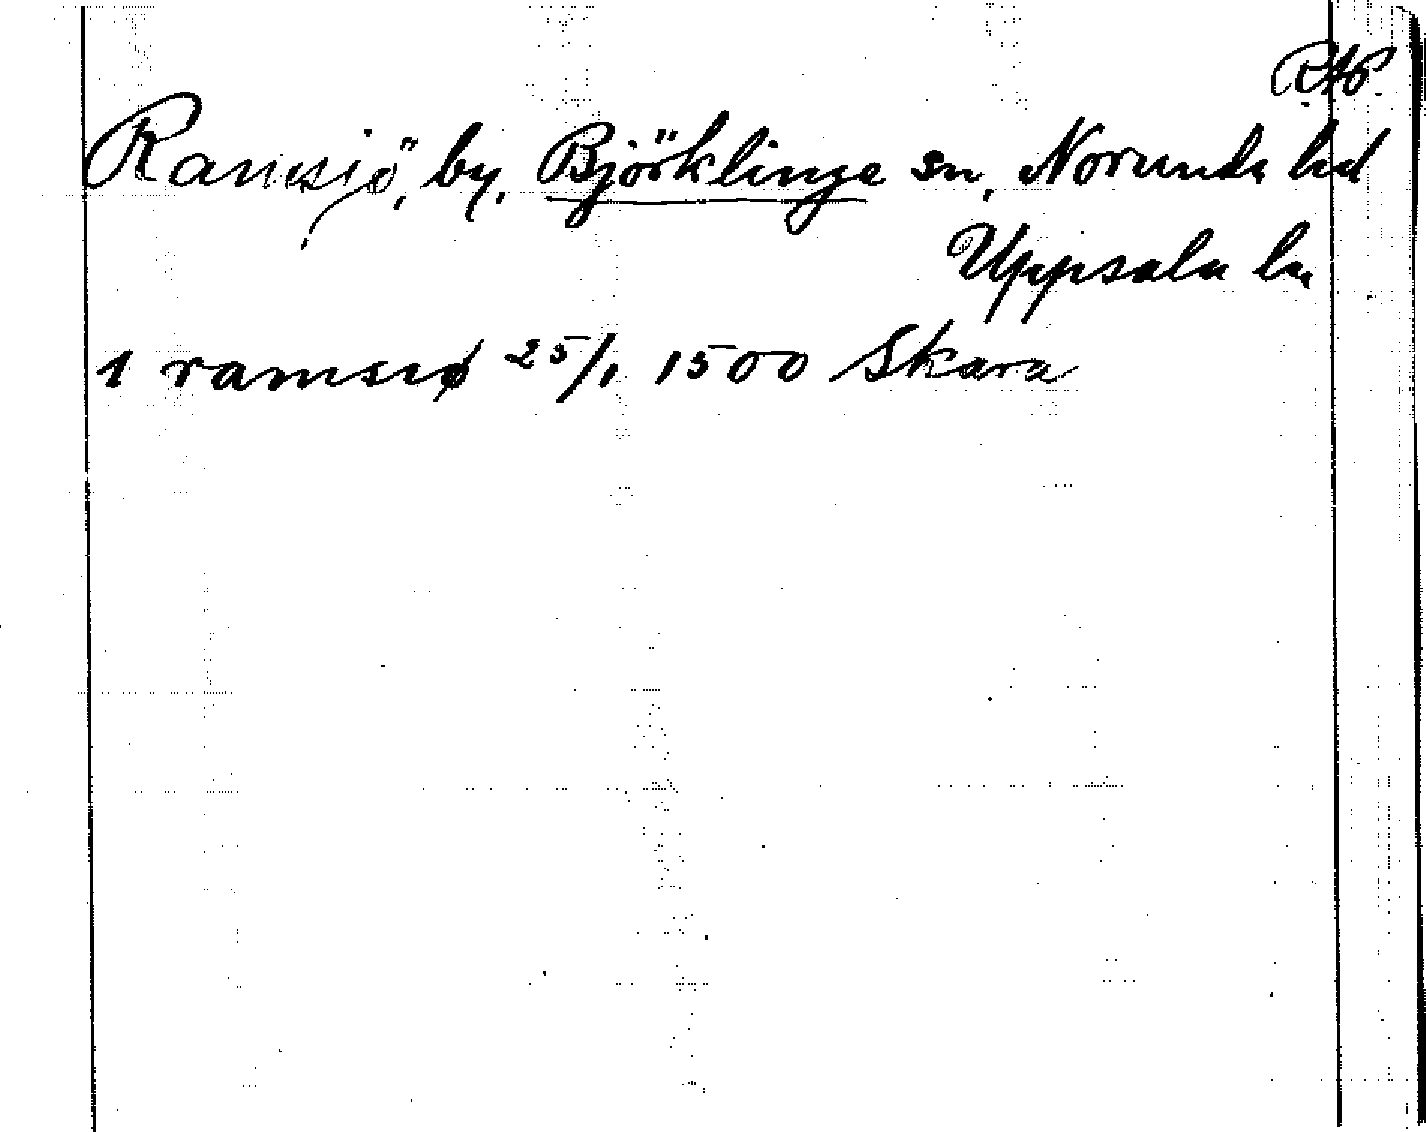 RAP.
Ramsjö, by, Björklinge sn, Norunda hd
Uppsala ln
1 ramsiø 25/1 1500 Skara